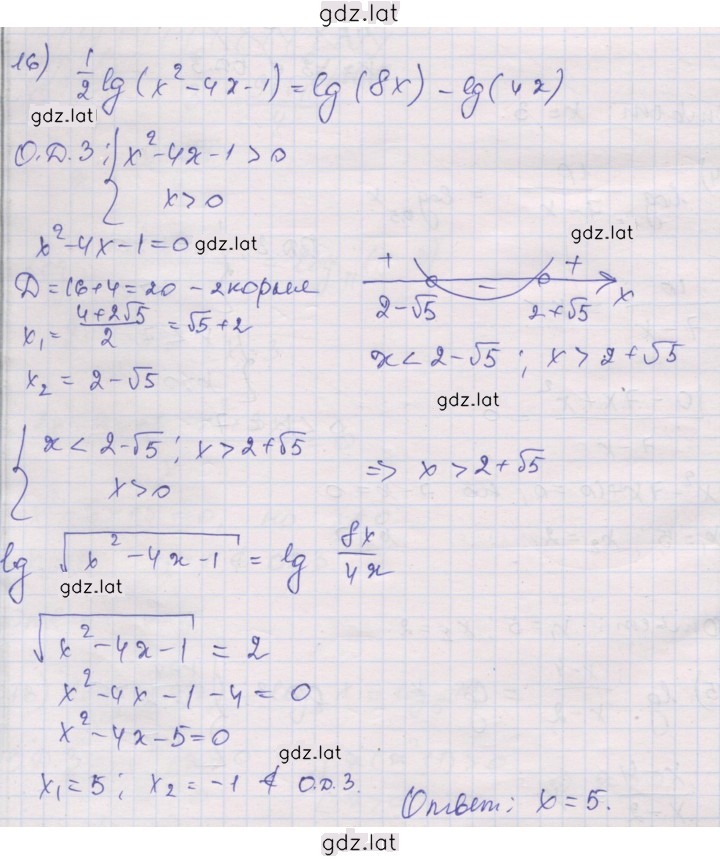 gdz.lat
16) 1/2 lg(x² - 4x - 1) = lg(8x) - lg(4x)
gdz.lat
О.Д.З: { x² - 4x - 1 > 0
x > 0
x² - 4x - 1 = 0 gdz.lat
gdz.lat
D = 16 + 4 = 20 - 2 корня
x₁ = (4 + 2√5)/2 = √5 + 2
x₂ = 2 - √5
+ - + x
2 - √5 2 + √5
x < 2 - √5 ; x > 2 + √5
gdz.lat
{ x < 2 - √5 ; x > 2 + √5
x > 0
=> x > 2 + √5
lg √(x² - 4x - 1) = lg 8x/4x
gdz.lat
√(x² - 4x - 1) = 2
x² - 4x - 1 - 4 = 0
x² - 4x - 5 = 0
gdz.lat
x₁ = 5 ; x₂ = -1 ∉ О.Д.З.
Ответ: x = 5.
gdz.lat